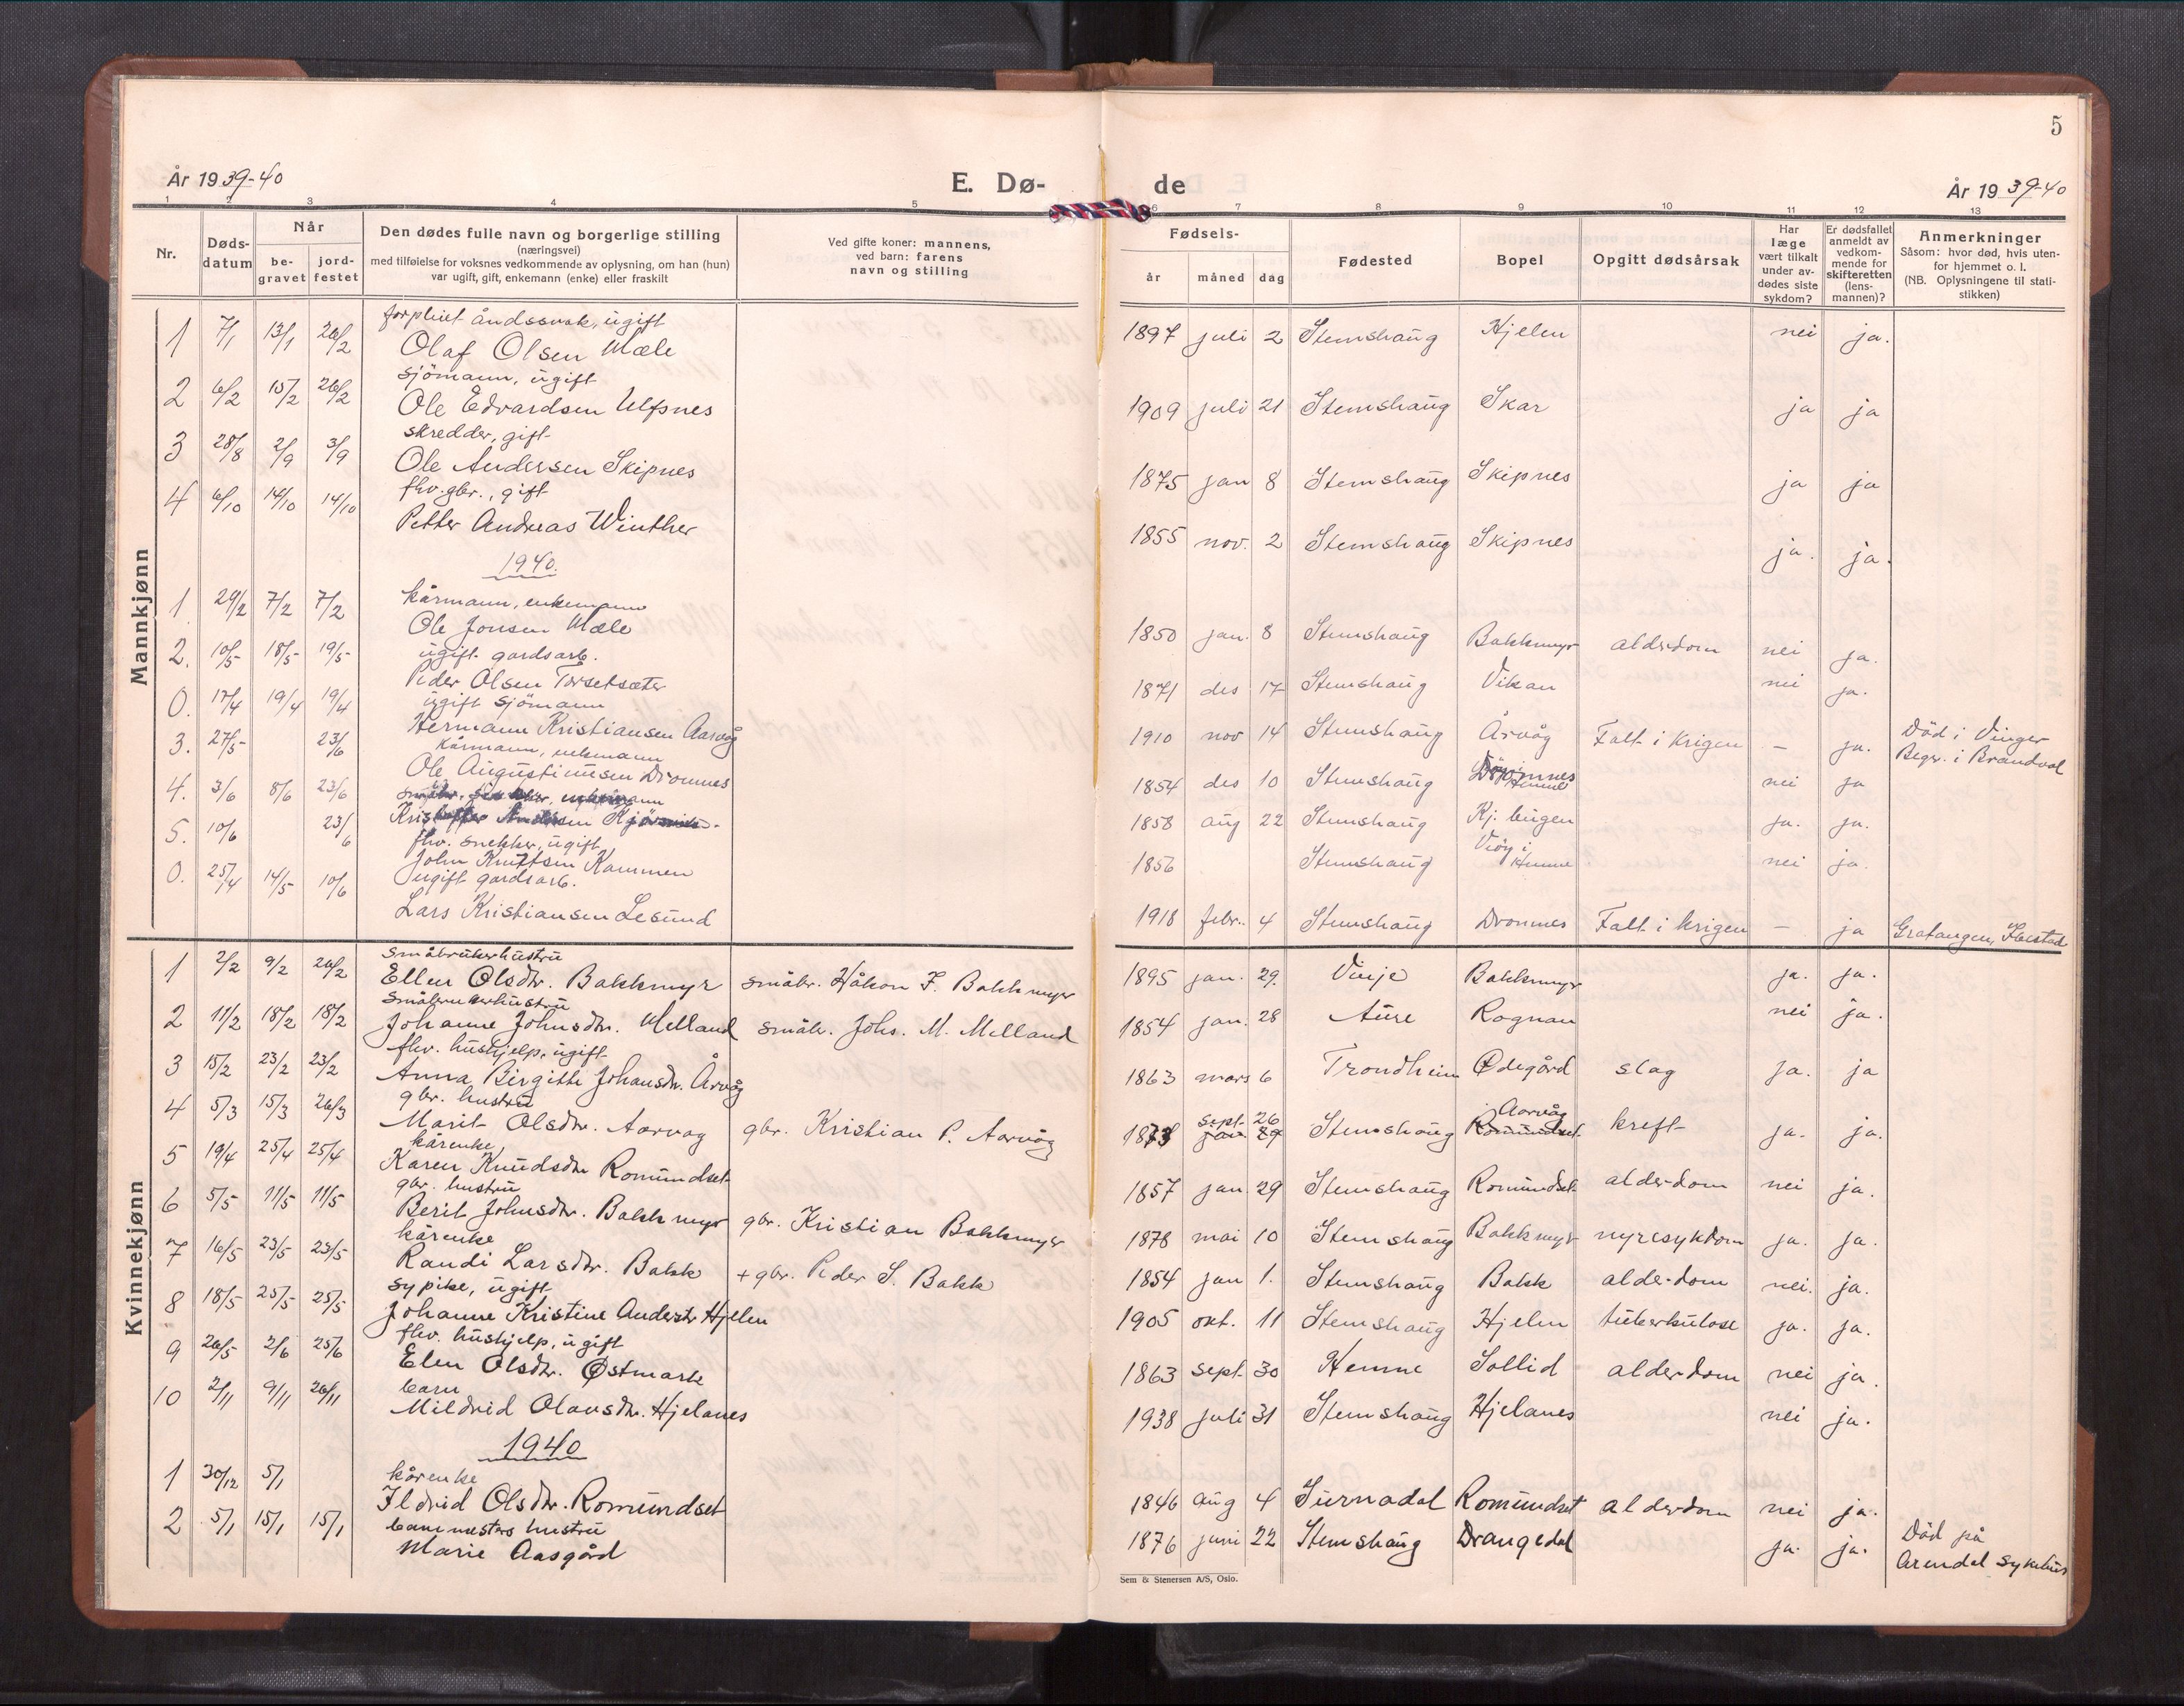 5
År 1939-40
E. Dø-
de
År 1939-40
1 2 3 4 5 6 7 8 9 10 11 12 13
Nr.
Døds-
datum
Når
be-
gravet
jord-
festet
Den dødes fulle navn og borgerlige stilling
(næringsvei)
med tilføielse for voksnes vedkommende av oplysning, om han (hun)
var ugift, gift, enkemann (enke) eller fraskilt
Ved gifte koner: mannens,
ved barn: farens
navn og stilling
Fødsels-
år måned dag
Fødested
Bopel
Opgitt dødsårsak
Har
læge
vært tilkalt
under av-
dødes siste
sykdom?
Er dødsfallet
anmeldt av
vedkom-
mende for
skifteretten
(lens-
mannen)?
Anmerkninger
Såsom: hvor død, hvis uten-
for hjemmet o. l.
(NB. Oplysningene til stati-
stikken)
Mannkjønn
forpleiet åndssvak, ugift
1 7/1 13/1 26/2 Olaf Olsen Mæle 1897 juli 2 Stemshaug Hjelen nei ja.
sjömann, ugift
2 6/2 15/2 26/2 Ole Edvardsen Ulfsnes 1909 juli 21 Stemshaug Skar ja ja
skredder, gift
3 28/8 2/9 3/9 Ole Andersen Skipnes 1875 jan 8 Stemshaug Skipnes ja ja
fhv. gbr., gift
4 6/10 14/10 14/10 Petter Andreas Winther 1855 nov. 2 Stemshaug Skipnes ja. ja.
1940.
kårmann, enkemann
1 29/2 7/2 7/2 Ole Jonsen Mæle 1850 jan. 8 Stemshaug Bakkmyr alderdom nei ja.
ugift gardsarb.
2. 10/5 18/5 19/5 Peder Olsen Torsetsæter 1871 des 17 Stemshaug Vikan nei ja.
ugift sjömann
0. 17/4 19/4 19/4 Hermann Kristiansen Aarvåg 1910 nov 14 Stemshaug Årvåg Falt i krigen – ja. Död i Vinger
Begr. i Brandval
kårmann, enkemann
3. 27/5 23/6 Ole Augustinusen Dromnes 1854 des 10 Stemshaug Dromnes nei ja
4. 3/6 8/6 23/6 1858 aug 22 Stemshaug Kj. bugen ja. ja.
fhv. snekker, ugift
5. 10/6 23/6 John Knutsen Kammen 1856 Stemshaug Viög i
Hemne nei ja.
ugift gardsarb.
0. 25/4 14/5 10/6 Lars Kristiansen Lesund 1918 febr. 4 Stemshaug Dromnes Falt i krigen – ja Gratangen,
Kvinnekjønn
småbrukerhustru
1 2/2 9/2 26/2 Ellen Olsdtr. Bakkmyr småbr. Håkon F. Bakkmyr 1895 jan. 29. Vinje Bakkmyr ja. ja.
småbrukerhustru
2 11/2 18/2 18/2 Johanne Johnsdtr. Melland småbr. Johs. M. Melland 1854 jan. 28 Aure Rognan nei ja.
fhv. hushjelp, ugift
3 15/2 23/2 23/2 Anna Birgitte Johansdtr. Årvåg 1863 mars 6 Trondheim Ødegård slag ja. ja
gbr. hustru
4 5/3 15/3 26/3 Marit Olsdtr. Aarvåg gbr. Kristian P. Aarvåg 1873 sept. 26 jan 29 Stemshaug Aarvåg Romundset kreft ja. ja.
kårenke
5 19/4 25/4 25/4 Karen Knudsdtr Romundset 1857 jan 29 Stemshaug Romundset alderdom nei ja.
gbr. hustru
6 5/5 11/5 11/5 Berit Johnsdtr. Bakkmyr gbr. Kristian Bakkmyr 1878 mai 10 Stemshaug Bakkmyr nyresykdom ja. ja.
kårenke
7 16/5 23/5 23/5 Randi Larsdtr. Bakk + gbr. Peder S. Bakk 1854 jan 1. Stemshaug Bakk alderdom nei. ja.
sypike, ugift
8 18/5 25/5 25/5 Johanne Kristine Anderstr Hjelen 1905 okt. 11 Stemshaug Hjelen tuberkulose ja. ja.
fhv. hushjelp, ugift
9 26/5 2/6 25/6 Elen Olsdtr. Østmark 1863 sept. 30 Hemne Sollid alderdom nei ja.
barn
10 2/11 9/11 26/11 Mildrid Olausdtr. Hjelanes 1938 juli 31 Stemshaug Hjelanes nei ja.
1940
kårenke
1 30/12 5/1 Ildrid Olsdtr. Romundset 1846 aug 4 Surnadal Romundset alderdom nei ja.
banemesters hustru
2 5/1 15/1 15/1 Marie Aasgård 1876 juni 22 Stemshaug Drangedal ja. ja. Död på
Arendal sykehus
Sem & Stenersen A/S, Oslo.